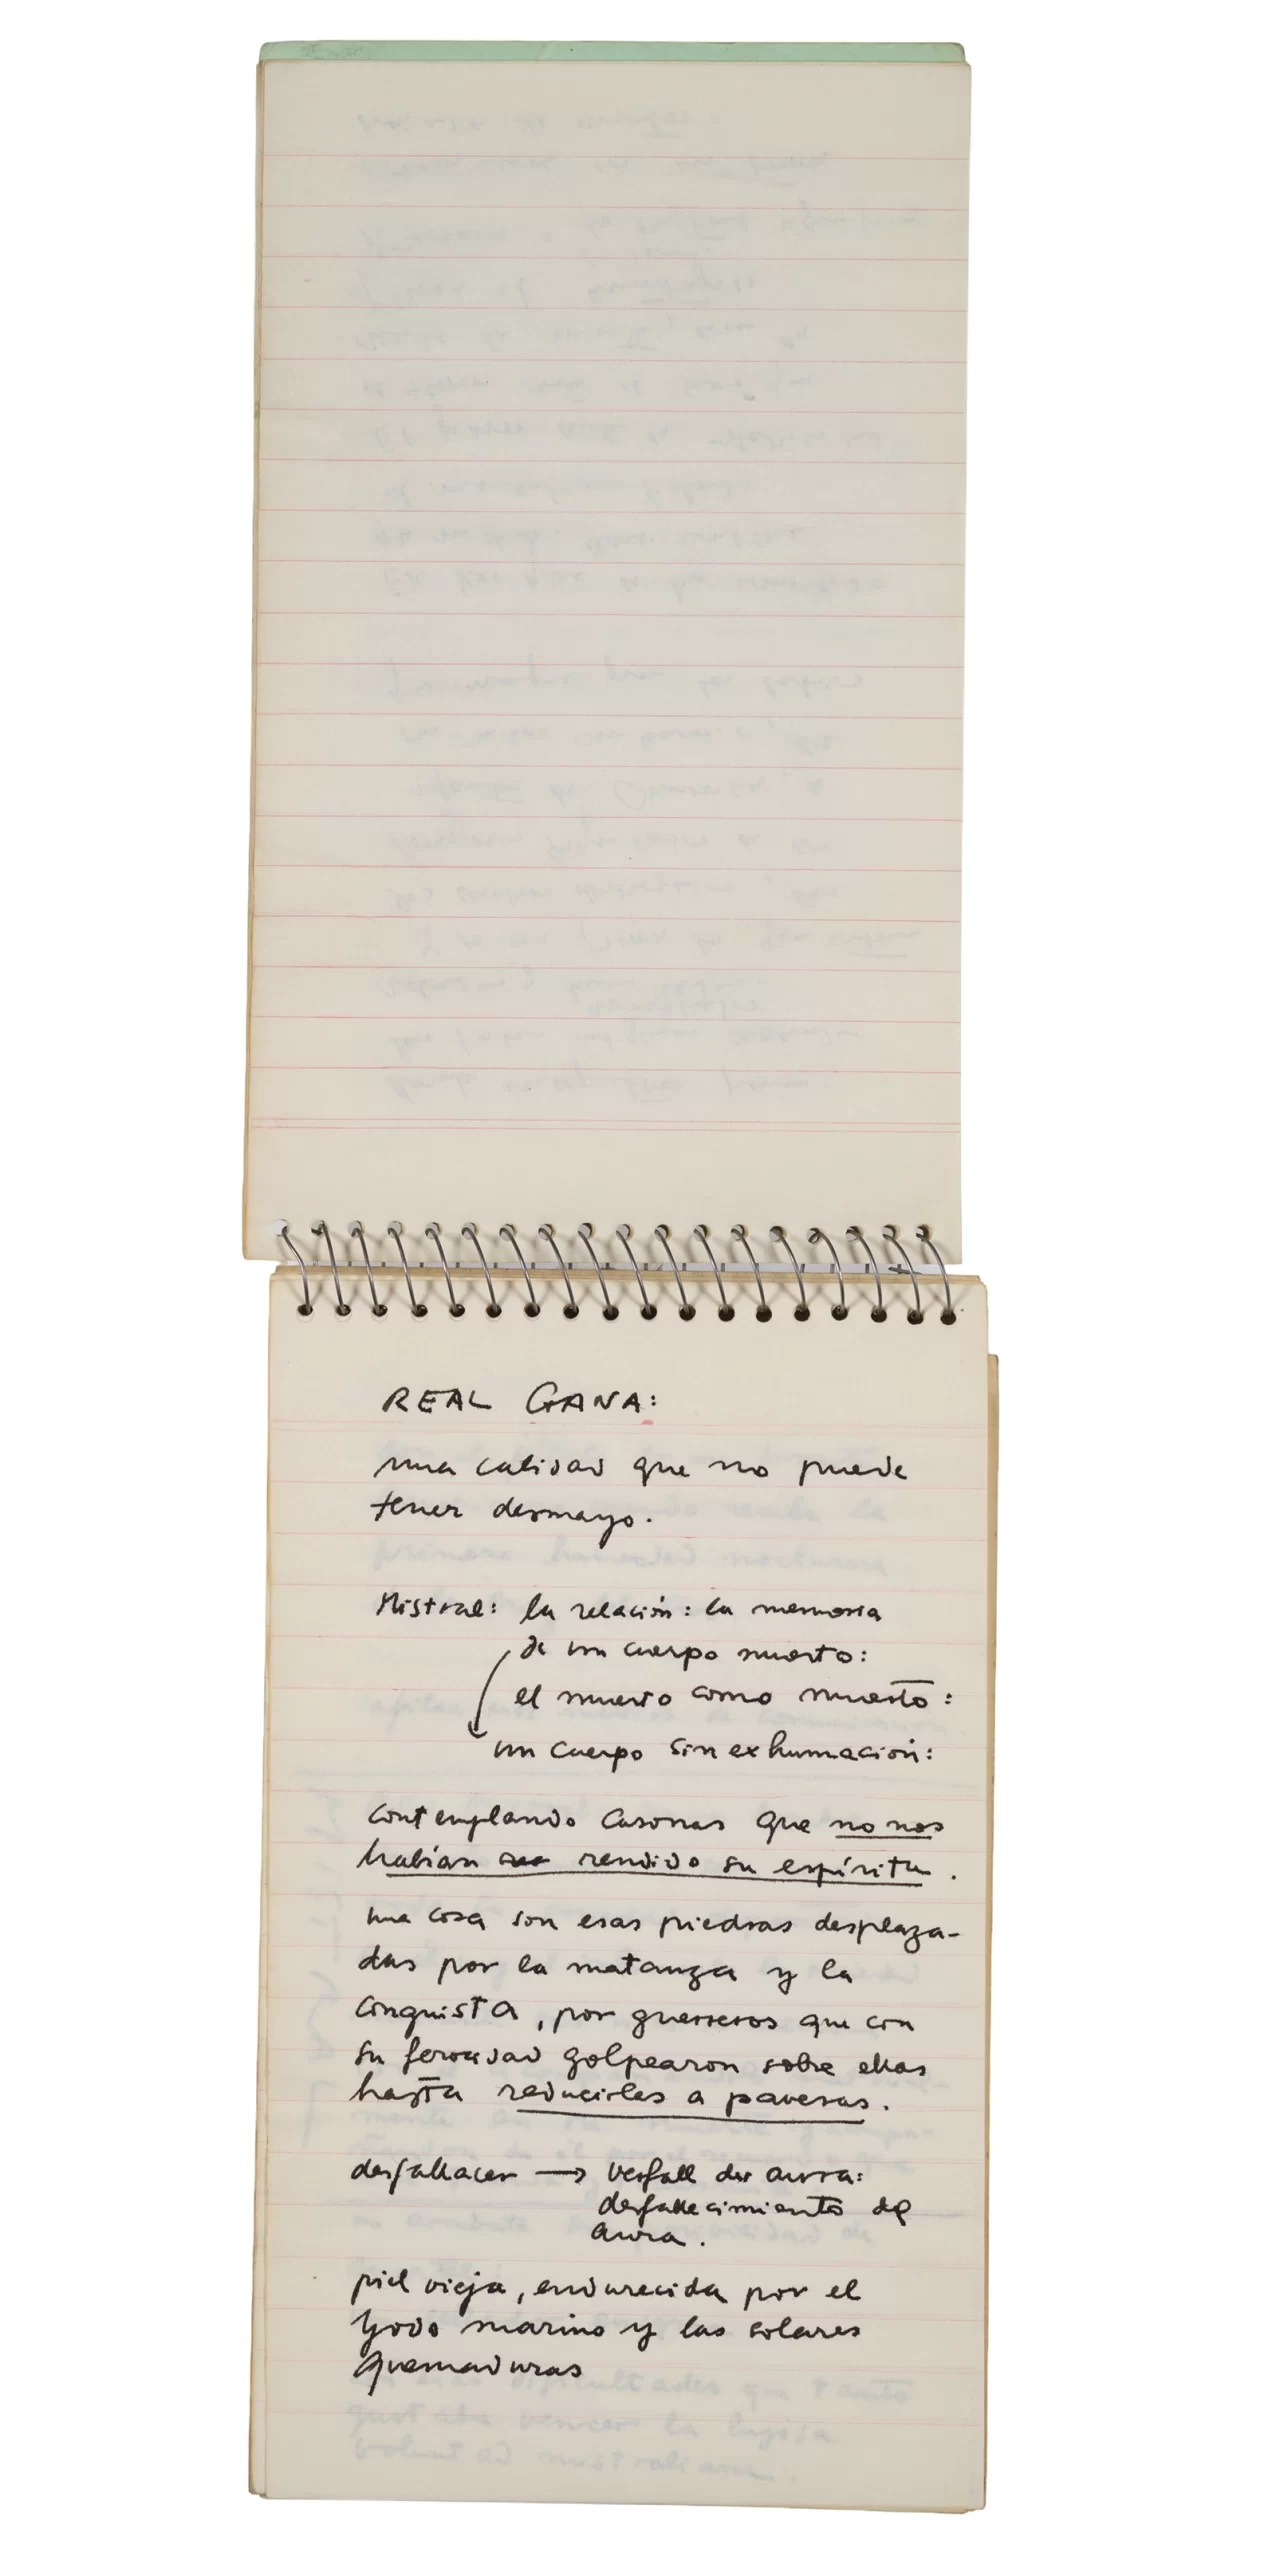 REAL GANA:
una calidad que no puede
tener desmayo.
Mistral: la relación: la memoria
de un cuerpo muerto:
el muerto como muerto:
un cuerpo sin exhumación:
contemplando casonas que no nos
habían rendido su espíritu.
una cosa son esas piedras desplaza-
das por la matanza y la
conquista, por guerreros que con
su ferocidad golpearon sobre ellas
hasta reducirlas a pavesas.
desfallecer → Verfall der aura:
desfallecimiento del
aura.
piel vieja, endurecida por el
yodo marino y las solares
quemaduras